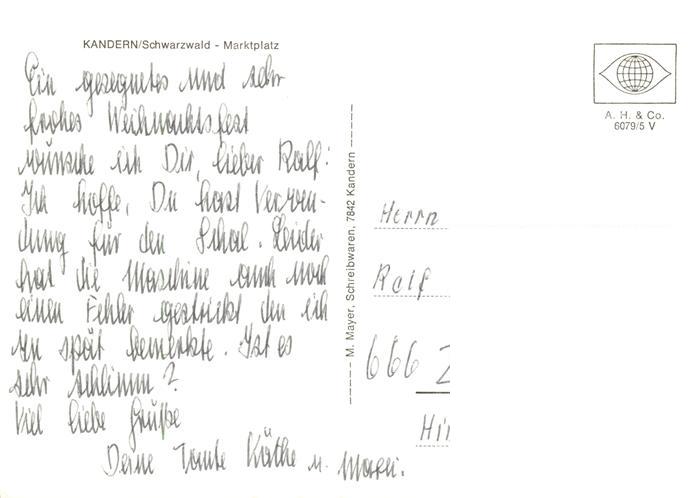 KANDERN/Schwarzwald - Marktplatz
Ein gesegnetes und sehr
frohes Weihnachtsfest
wünsche ich Dir, lieber Ralf!
Ich hoffe, Du hast Verwen-
dung für den Schal. Leider
hat die Maschine auch noch
einen Fehler gestrickt den ich
zu spät bemerkte. Ist es
sehr schlimm?
Viel liebe Grüße
Deine Tante Käthe u.
M. Mayer, Schreibwaren, 7842 Kandern
A. H. & Co.
6079/5 V
Herrn
Ralf
666